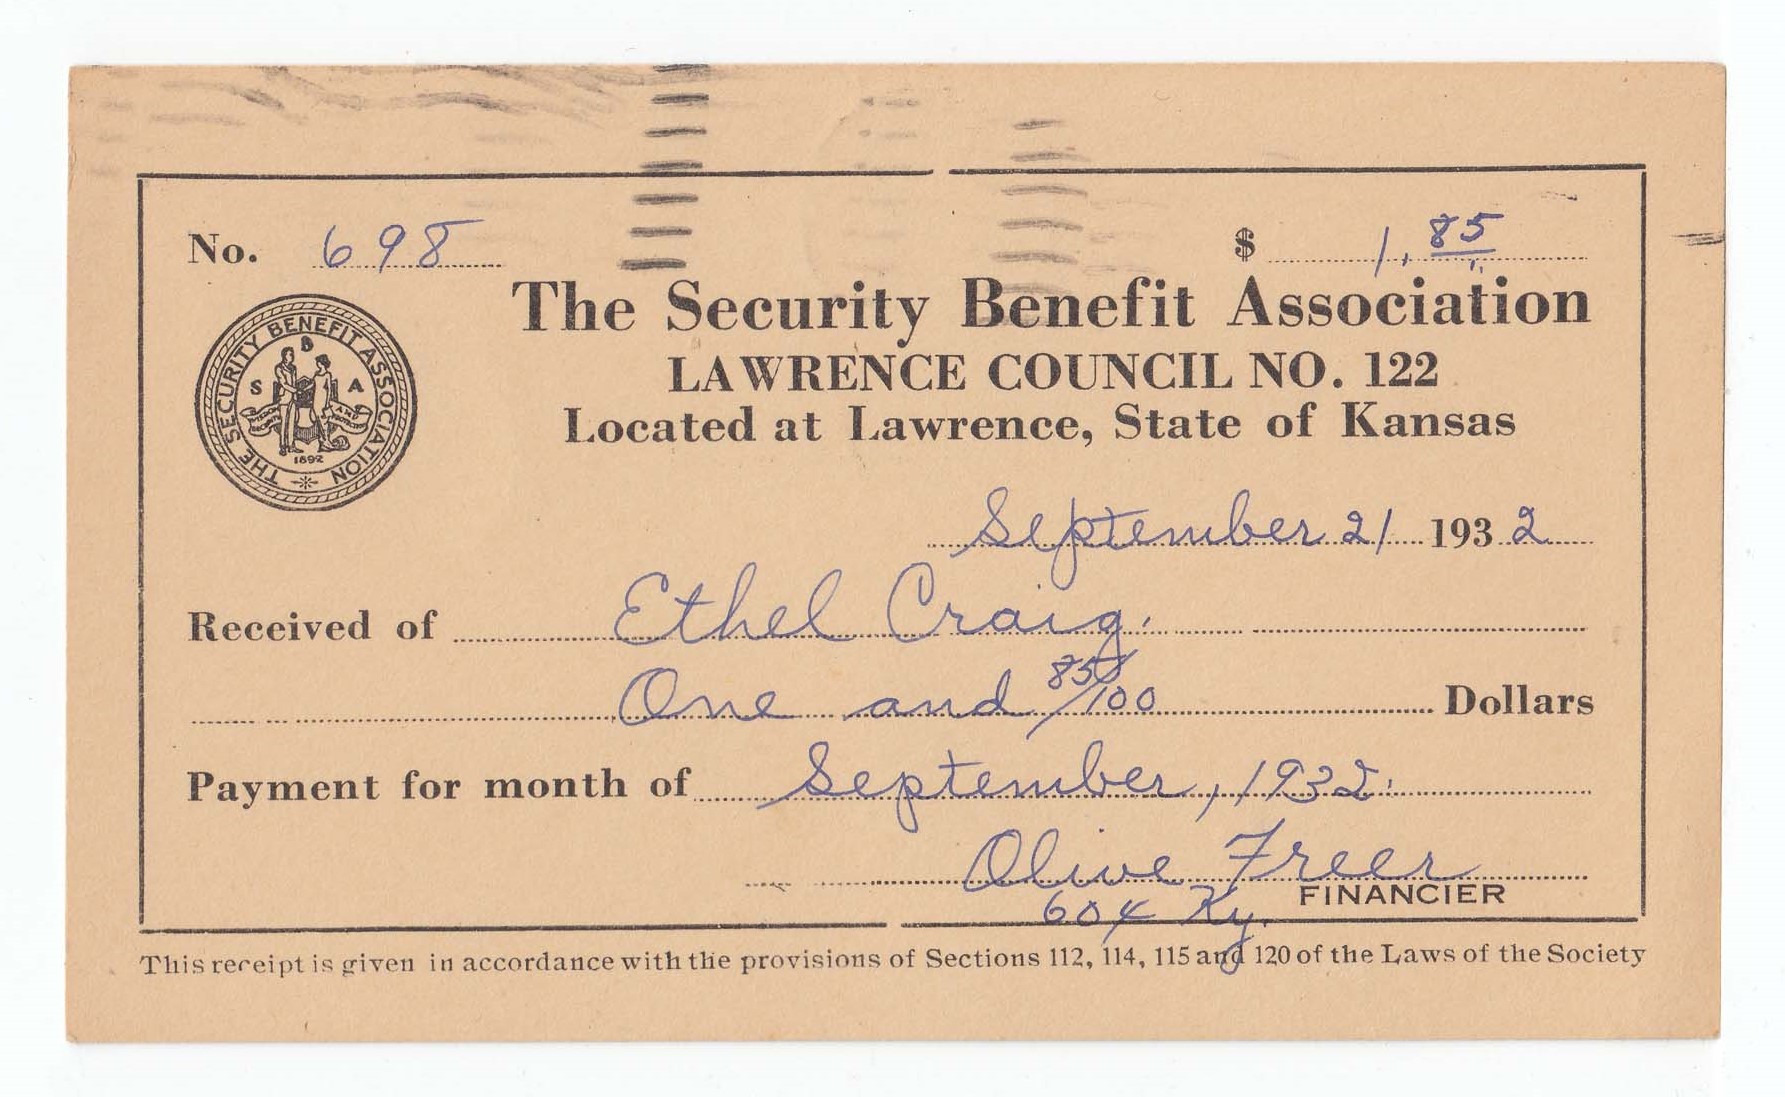 No. 698 $ 1.85
THE SECURITY BENEFIT ASSOCIATION
S B A
1892
The Security Benefit Association
LAWRENCE COUNCIL NO. 122
Located at Lawrence, State of Kansas
September 21 1932
Received of Ethel Craig.
One and 85/100 Dollars
Payment for month of September, 1932.
Olive Freer
FINANCIER
604 Ky.
This receipt is given in accordance with the provisions of Sections 112, 114, 115 and 120 of the Laws of the Society